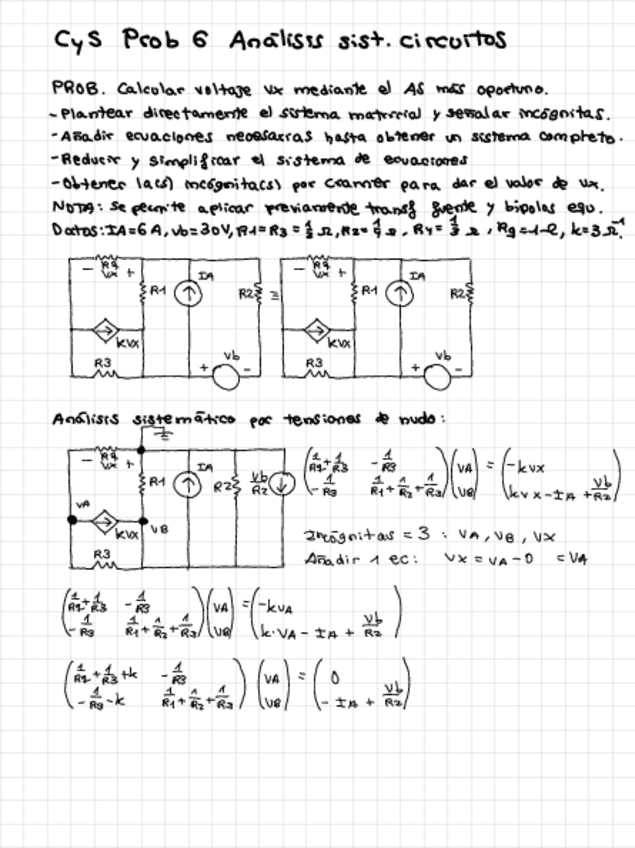 CyS Prob 6 Análisis sist. circuitos
PROB. Calcular voltaje Vx mediante el AS más oportuno.
- Plantear directamente el sistema matricial y señalar incógnitas.
- Añadir ecuaciones necesarias hasta obtener un sistema completo.
- Reducir y simplificar el sistema de ecuaciones
- Obtener la(s) incógnita(s) por cramer para dar el valor de Vx.
NOTA: Se permite aplicar previamente transf fuente y bipolos equ.
Datos: IA=6A, Vb=30V, R1=R3=1/2 Ω, R2=1/4 Ω, R4=1/3 Ω, Rg=1Ω, k=3Ω⁻¹.
- Vx +
R1
IA
R2
≡
kVx
R3
+ Vb -
- Vx +
R1
IA
R2
kVx
R3
+ Vb -
Análisis sistemático por tensiones de nudo:
- Vx +
R1
IA
R2
Vb/R2
VA
kVx
VB
R3
VA
VB
=
-kVx
kVx - IA + Vb/R2
Incógnitas = 3 : VA, VB, Vx
Añadir 1 ec: Vx = VA - 0 = VA
VA
VB
=
-kVA
k·VA - IA + Vb/R2
VA
VB
=
0
-IA + Vb/R2